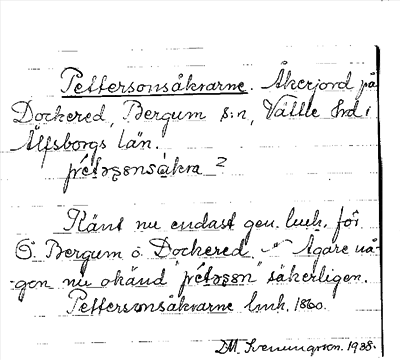 Pettersonsåkrarne. Åkerjord på
Dockered, Bergum s:n, Vättle hd i
Älfsborgs län.
pétəʂɘnsàkra 2
Känt nu endast gen. lmh. för
Ö. Bergum o. Dockered. Ägare nå-
gon nu okänd "pétəʂɘn" säkerligen.
Pettersonsåkrarne lmh. 1860.
DM. Svenungsson. 1938.